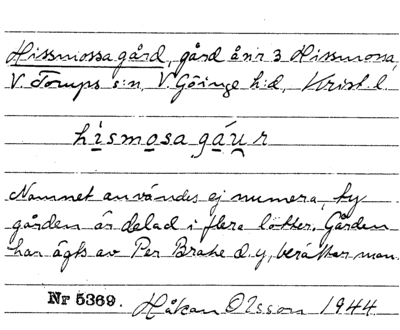 Hissmossagård, gård å nr 3 Hissmossa,
V. Torups s:n, V. Göinge h:d, Krist. l.
hismosagáur
Namnet användes ej numera, ty
gården är delad i flera lotter. Gården
har ägts av Per Brahe d. y, berättar man.
Nr 5369. Håkan Olsson 1944.